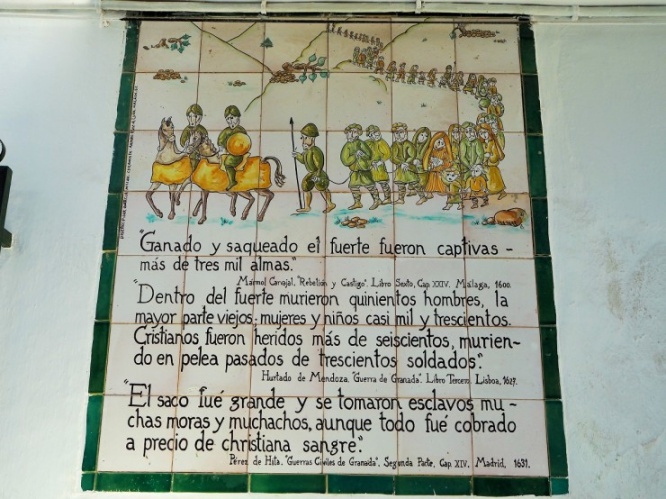 "Ganado y saqueado el fuerte fueron captivas -
más de tres mil almas."
Marmol Carvajal. "Rebelión y Castigo". Libro Sexto, Cap. XXIV. Málaga, 1600.
"Dentro del fuerte murieron quinientos hombres, la
mayor parte viejos; mujeres y niños casi mil y trescientos.
Cristianos fueron heridos más de seiscientos, murien-
do en pelea pasados de trescientos soldados".
Hurtado de Mendoza. "Guerra de Granada". Libro Tercero. Lisboa, 1627.
"El saco fué grande y se tomaron esclavos mu-
chas moras y muchachos, aunque todo fué cobrado
a precio de christiana sangre".
Pérez de Hita. "Guerras Civiles de Granada", Segunda Parte, Cap. XIV. Madrid, 1631.